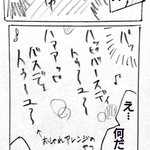 ハッピバースデー
トゥーユー
ハァアッピ
バースディ
トゥーユー
え…
何だ
↑おしゃれアレンジの
やつ